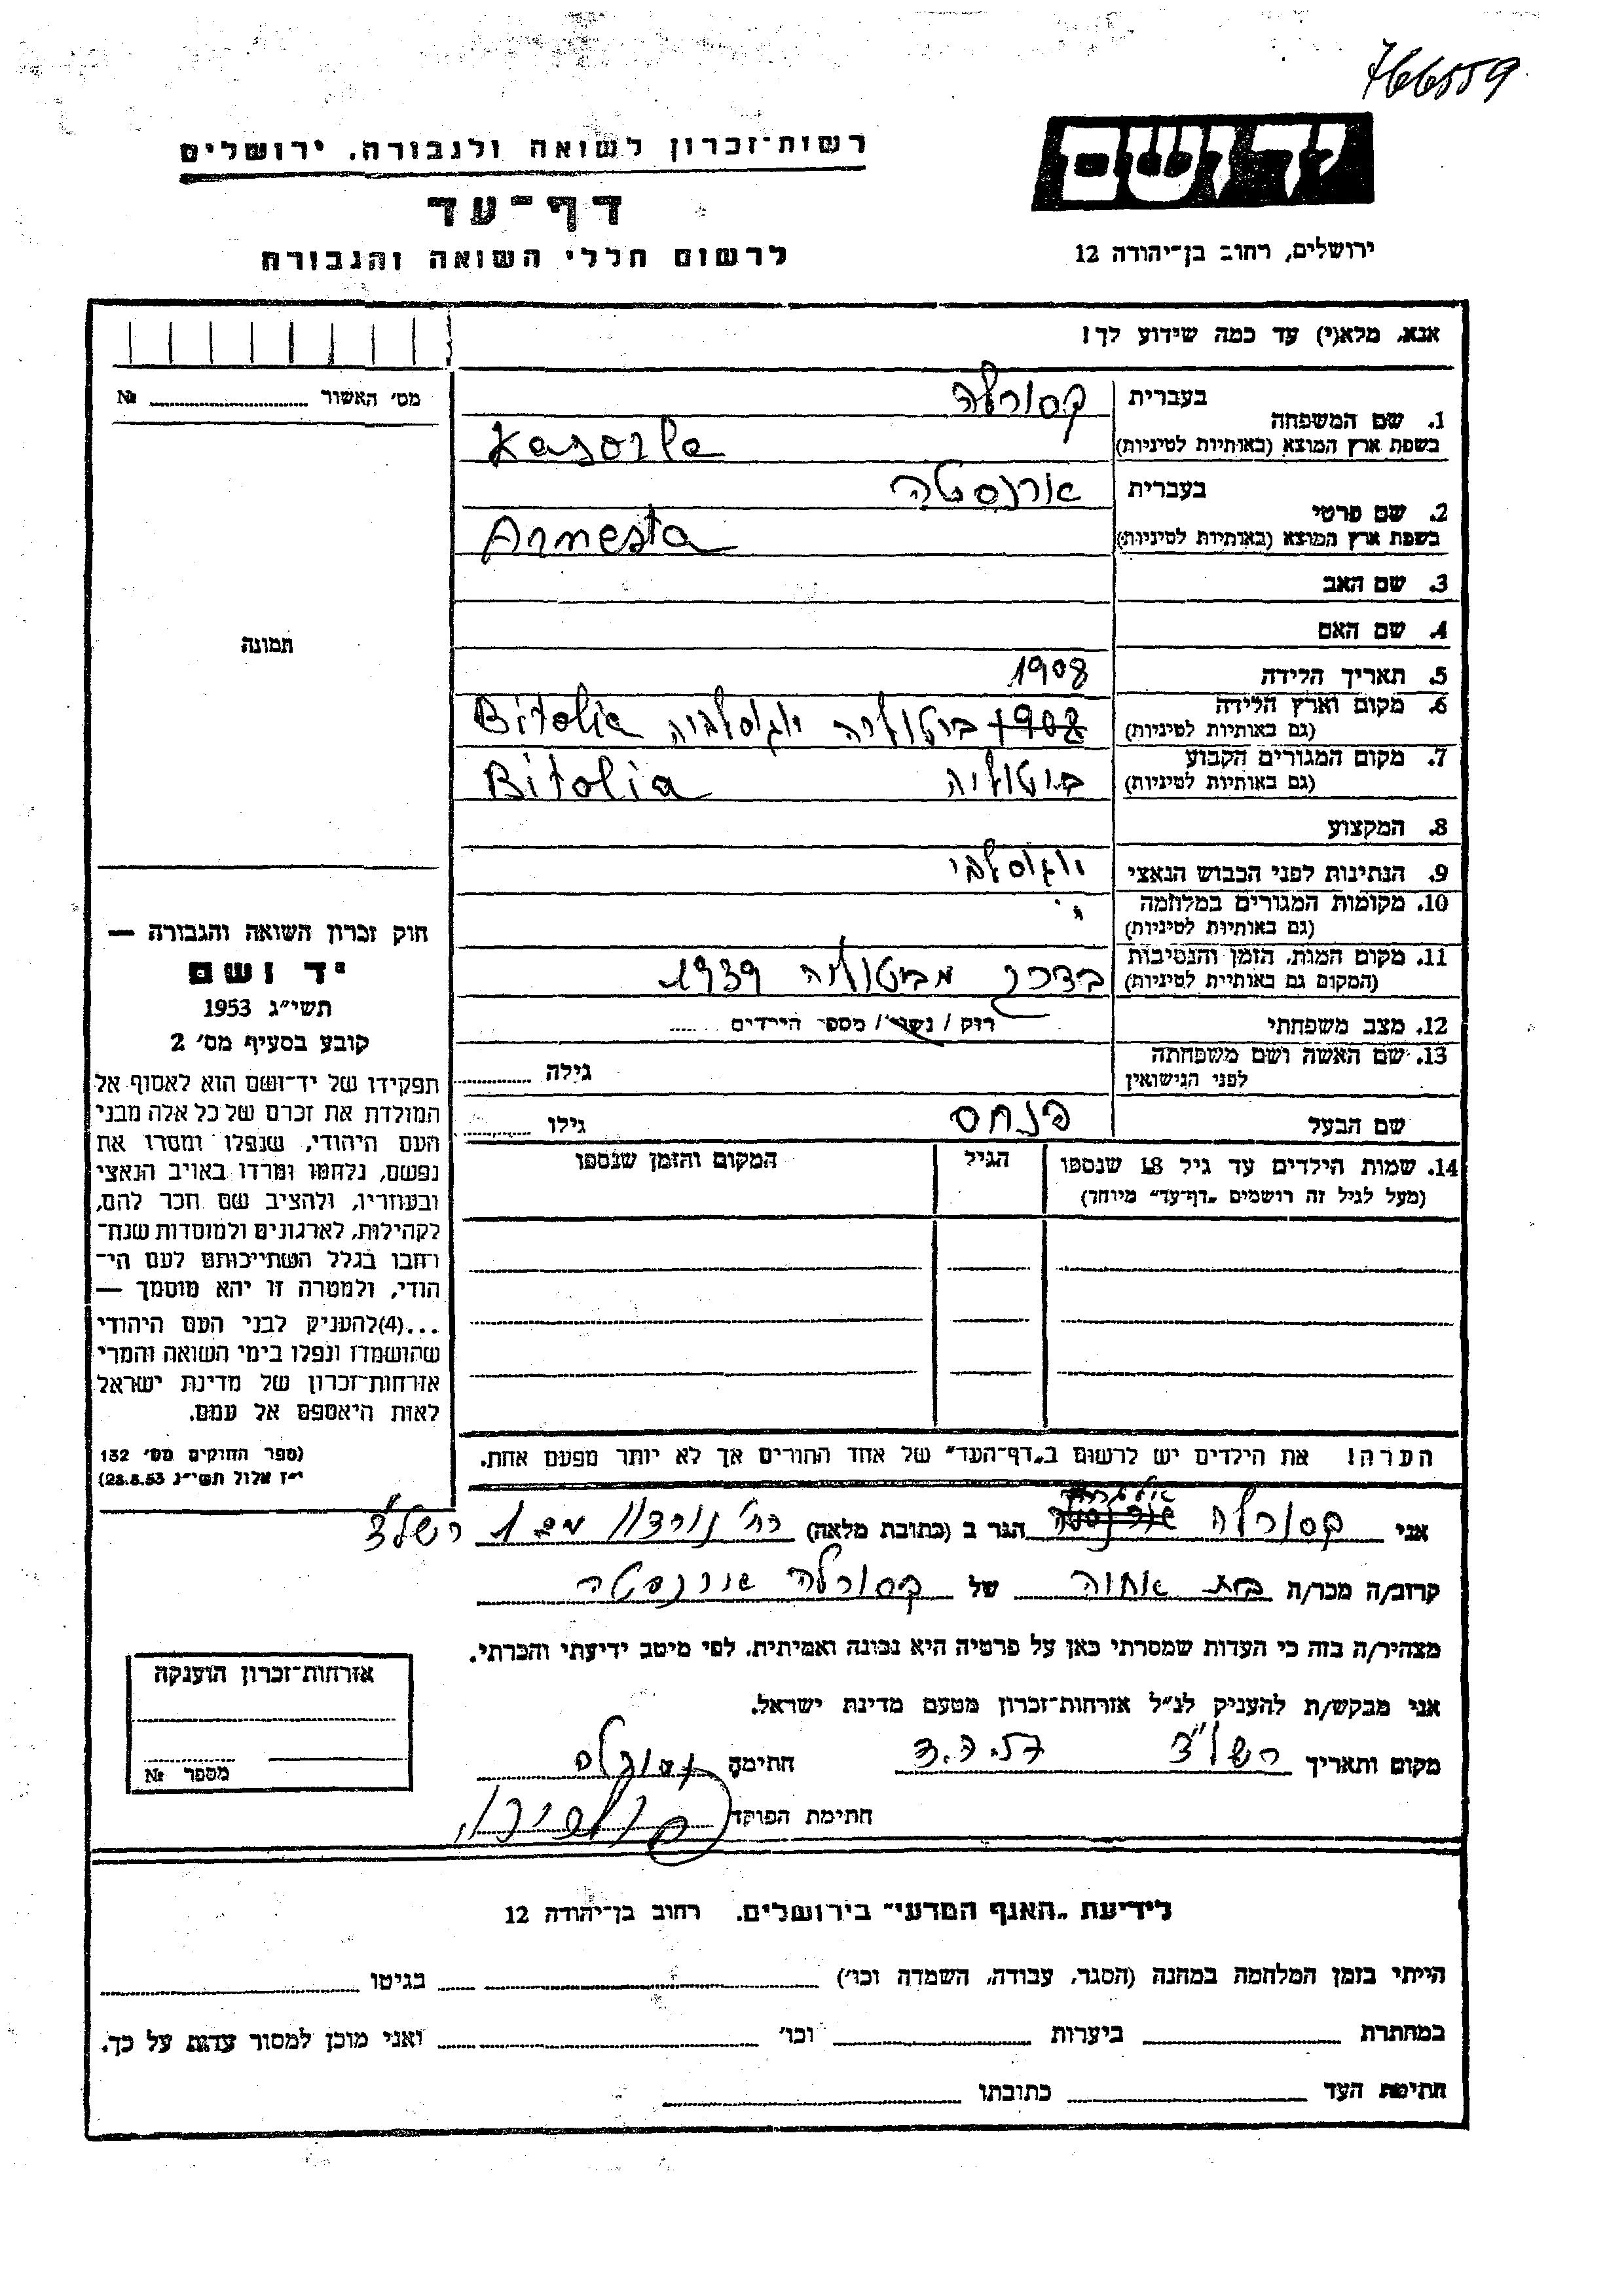 766559
יד ושם
רשות־זכרון לשואה ולגבורה, ירושלים
דף־עד
לרשום חללי השואה והגבורה
ירושלים, רחוב בן־יהודה 12
אנא, מלא(י) עד כמה שידוע לך!
מס׳ האשור № ........
1. שם המשפחה
בעברית קסורלה
בשפת ארץ המוצא (באותיות לטיניות) Kasorla
2. שם פרטי
בעברית ארנסטה
בשפת ארץ המוצא (באותיות לטיניות) Arnesta
3. שם האב
4. שם האם
תמונה
5. תאריך הלידה 1908
6. מקום וארץ הלידה
(גם באותיות לטיניות) 1908 ביטוליה יוגוסלביה Bitolia
7. מקום המגורים הקבוע
(גם באותיות לטיניות) ביטוליה Bitolia
8. המקצוע
9. הנתינות לפני הכבוש הנאצי יוגוסלבי
10. מקומות המגורים במלחמה
(גם באותיות לטיניות)
11. מקום המות, הזמן והנסיבות
(המקום גם באותיות לטיניות) בדרך מביטוליה 1939
12. מצב משפחתי רוק / נשוי / מספר הילדים ......
13. שם האשה ושם משפחתה
לפני הנישואין גילה ........
שם הבעל פנחס גילו ........
14. שמות הילדים עד גיל 18 שנספו
(מעל לגיל זה רושמים „דף־עד״ מיוחד)
הגיל
המקום והזמן שנספו
חוק זכרון השואה והגבורה —
יד ושם
תשי״ג 1953
קובע בסעיף מס׳ 2
תפקידו של יד־ושם הוא לאסוף אל
המולדת את זכרם של כל אלה מבני
העם היהודי, שנפלו ומסרו את
נפשם, נלחמו ומרדו באויב הנאצי
ובעוזריו, ולהציב שם וזכר להם,
לקהילות, לארגונים ולמוסדות שנח־
רבו בגלל השתייכותם לעם הי־
הודי, ולמטרה זו יהא מוסמך —
...(4) להעניק לבני העם היהודי
שהושמדו ונפלו בימי השואה והמרי
אזרחות־זכרון של מדינת ישראל
לאות היאספם אל עמם.
(ספר החוקים מס׳ 132
י״ז אלול תשי״ג 28.8.53)
הערה! את הילדים יש לרשום ב„דף־העד״ של אחד ההורים אך לא יותר מפעם אחת.
אני קסורלה הגר ב (כתובת מלאה) רח׳ נורדוי 1 רשל״צ
קרוב/ה מכר/ה בת אחוה של קסורלה ארנסטה
מצהיר/ה בזה כי העדות שמסרתי כאן על פרטיה היא נכונה ואמיתית, לפי מיטב ידיעתי והכרתי.
אני מבקש/ת להעניק לנ״ל אזרחות־זכרון מטעם מדינת ישראל.
מקום ותאריך רשל״צ חתימה קסורלה
חתימת הפוקד
אזרחות־זכרון הוענקה
מספר №
לידיעת „האגף המדעי״ בירושלים, רחוב בן־יהודה 12
הייתי בזמן המלחמה במחנה (הסגר, עבודה, השמדה וכו׳) ........ בגיטו ........
במחתרת ........ ביערות ........ וכו׳ ........ ואני מוכן למסור עדות על כך.
חתימת העד ........ כתובתו ........